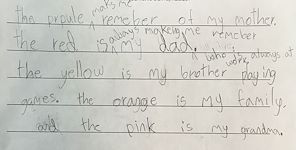 the prpule makes me remeber of my mother.
the red is always making me remeber my dad. who is always at work,
the yellow is my brother playing
games. the orange is my family.
and the pink is my grandma.